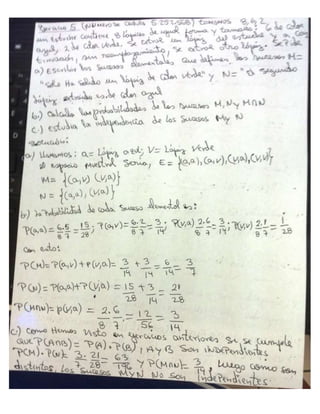 Ejercicio 5 (Número de Cédula 5 252-568) tomamos 8, 6, 2
un Estuche contiene 8 lápices de igual forma y tamaño; 6 de color
azul, 2 de color verde. Se extrae un lápiz del estuche y a
sin reemplazamiento, se extrae otro lápiz. Se Pide
a) Escribir los sucesos elementales que definen los sucesos M=
"solo ha salido un lápiz de color verde" y N= "El segundo
lápiz extraído es de color azul
b) Calcular las probabilidades de los sucesos M, N y M∩N
c.) Estudia la independencia de los sucesos M y N
solución:
a) Llamemos: a= lápiz azul; V= lápiz verde
el espacio muestral sería, E= {(a,a),(a,v),(v,a),(v,v)}
M= {(a,v) (v,a)}
N= {(a,a), (v,a)}
b) la Probabilidad de cada suceso elemental es:
P(a,a)= 6/8 · 5/7 = 15/28; P(a,v)= 6/8 · 2/7 = 3/14; P(v,a) 2/8 · 6/7 = 3/14; P(v,v) 2/8 · 1/7 = 1/28
con esto:
P(M)= P(a,v)+P(v,a)= 3/14 + 3/14 = 6/14 = 3/7
P(N)= P(a,a)+P(v,a)= 15/28 + 3/14 = 21/28
P(M∩N)= P(v,a) = 2/8 · 6/7 = 12/56 = 3/14
c) como Hemos visto en ejercicios anteriores si se cumple
que P(A∩B) = P(A) · P(B), A y B son independientes
P(M) · P(N)= 3/7 · 21/28 = 63/196 y P(M∩N)= 3/14, luego como son
distintas, los sucesos M y N no son independientes.